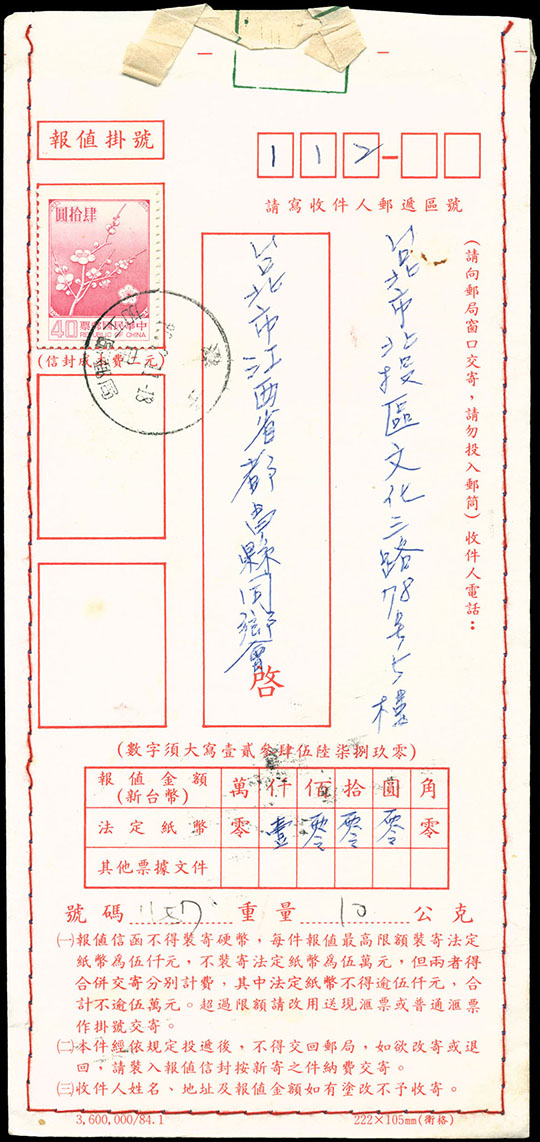 報值掛號
112-
請寫收件人郵遞區號
肆拾圓
40 中華民國郵票
REPUBLIC OF CHINA
(信封成本費 元)
(請向郵局窗口交寄，請勿投入郵筒) 收件人電話：
台北市北投區文化三路78号七樓
台北市江西省都昌縣同鄉會
啓
(數字須大寫壹貳參肆伍陸柒捌玖零)
報值金額(新台幣) 萬 仟 佰 拾 圓 角
法定紙幣 零 壹 零 零 零 零
其他票據文件
號碼 重量 10 公克
㈠報值信函不得裝寄硬幣，每件報值最高限額裝寄法定
紙幣為伍仟元，不裝寄法定紙幣為伍萬元，但兩者得
合併交寄分別計費，其中法定紙幣不得逾伍仟元，合
計不逾伍萬元。超過限額請改用送現滙票或普通滙票
作掛號交寄。
㈡本件經依規定投遞後，不得交回郵局，如欲改寄或退
回，請裝入報值信封按新寄之件納費交寄。
㈢收件人姓名、地址及報值金額如有塗改不予收寄。
3,600,000/84.1 222×105mm(衡格)